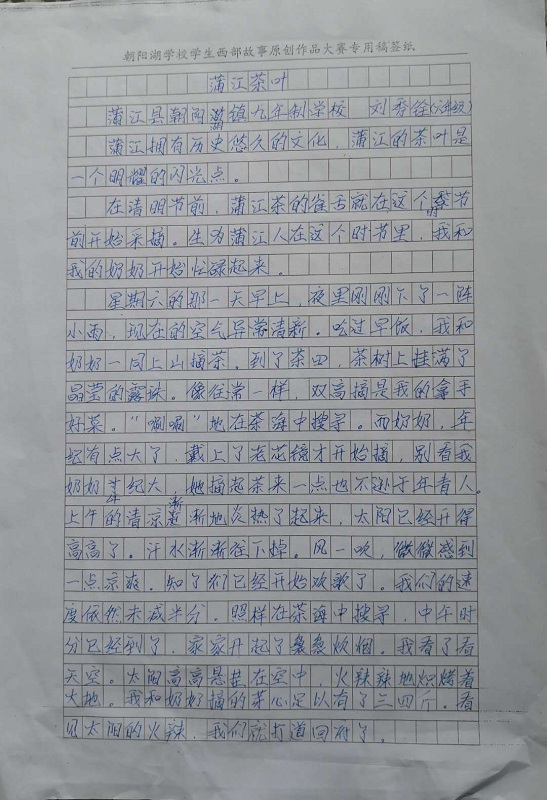 朝阳湖学校学生西部故事原创作品大赛专用稿签纸
蒲江茶叶
蒲江县朝阳湖镇九年制学校 刘秀铨(六年级)
蒲江拥有历史悠久的文化，蒲江的茶叶是
一个明耀的闪光点。
在清明节前，蒲江茶的雀舌就在这个季节
前开始采摘。生为蒲江人在这个时节里，我和
我的奶奶开始忙碌起来。
星期六的那一天早上，夜里刚刚下了一阵
小雨，现在的空气异常清新。吃过早饭，我和
奶奶一同上山摘茶，到了茶四，茶树上挂满了
晶莹的露珠。像往常一样，双高摘是我的拿手
好菜。“唰唰”地在茶海中搜寻。而奶奶，年
纪有点大了，戴上了老花镜才开始摘，别看我
奶奶年纪大，她摘起茶来一点也不逊于年青人。
上午的清凉渐渐地炎热了起来，太阳已经开得
高高了。汗水渐渐往下掉。风一吹，微微感到
一点凉爽。知了们已经开始欢歌了。我们的速
度依然未减半分。照样在茶海中搜寻，中午时
分已经到了，家家开起了袅袅炊烟。我看了看
天空。太阳高高悬挂在空中，火辣辣地炽烤着
大地。我和奶奶摘的芽心足以有了三四斤。看
见太阳的火辣，我们就打道回府了。